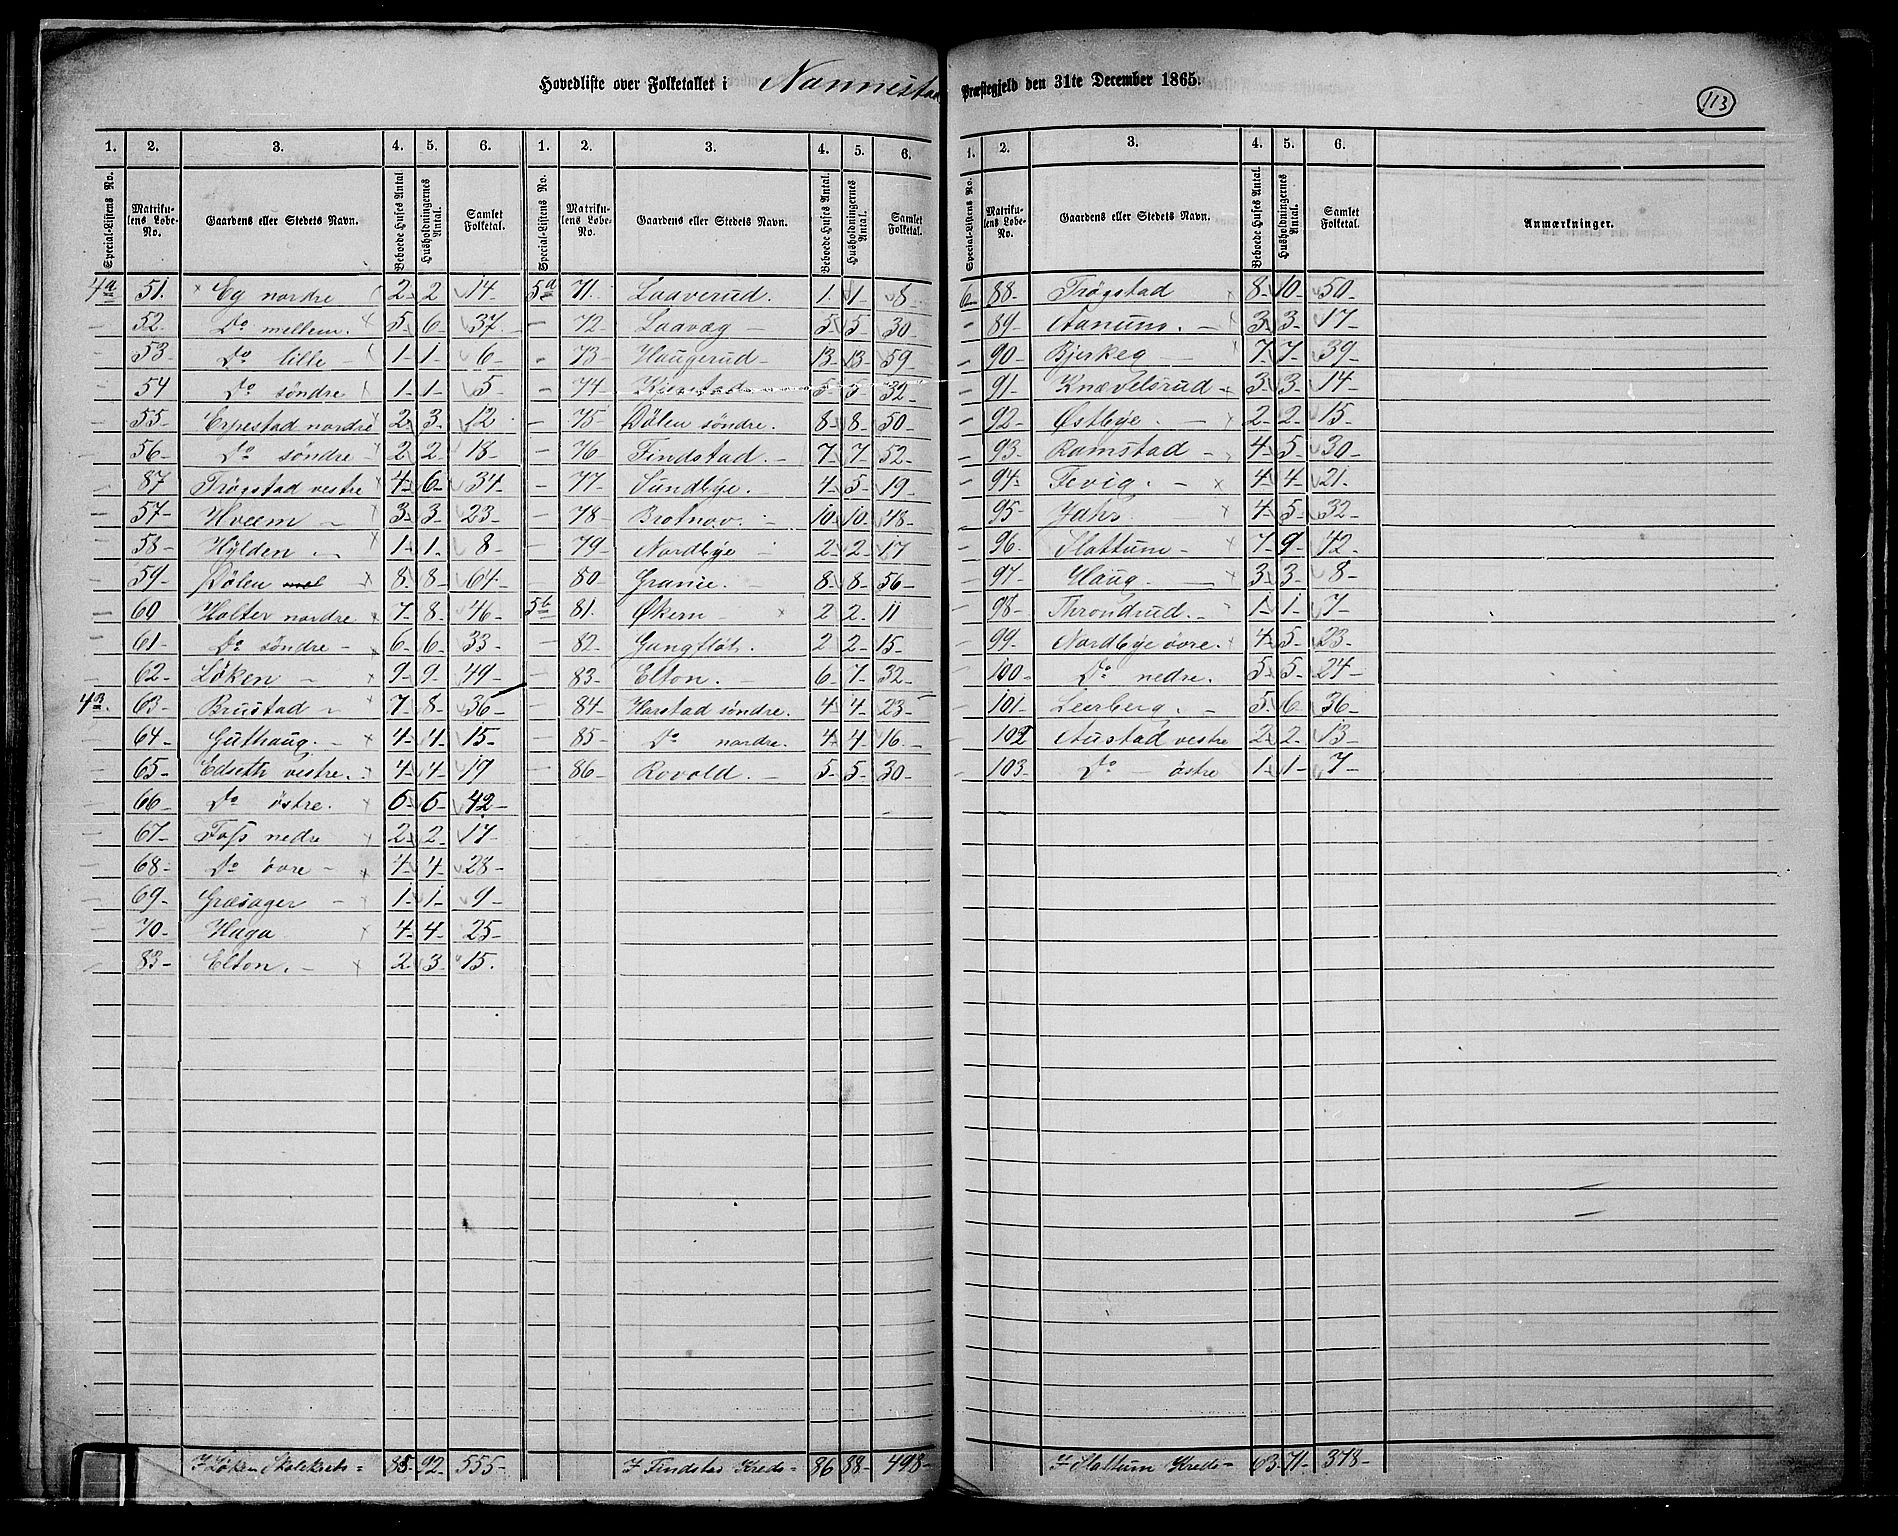 Hovedliste over Folketallet i Nannestad Præstegjeld den 31te December 1865.
113
1. 2. 3. 4. 5. 6. 1. 2. 3. 4. 5. 6. 1. 2. 3. 4. 5. 6.
Special-Listens No. Matrikulens Løbe-No. Gaardens eller Stedets Navn. Beboede Huses Antal. Husholdningernes Antal. Samlet Folketal. Special-Listens No. Matrikulens Løbe-No. Gaardens eller Stedets Navn. Beboede Huses Antal. Husholdningernes Antal. Samlet Folketal. Special-Listens No. Matrikulens Løbe-No. Gaardens eller Stedets Navn. Beboede Huses Antal. Husholdningernes Antal. Samlet Folketal. Anmærkninger.
4a 51. Eg nordre 2 2 14 5a 71. Laaverud. 1 1 8 6 88 Trøgstad 8 10 50
52. Do mellem. 5 6 37 72 Laavæg 5 5 30 89 Aanum. 3 3 17
53 Do lille 1 1 6 73 Haugerud 13 13 59 90 Bjerkeg 7 7 39
54 Do søndre 1 1 5 74 5 5 32 91 Knævelsrud 3 3 14
55 Erpestad nordre 2 3 12 75 Dølen søndre. 8 8 50 92 Østbye. 2 2 15
56 Do søndre 2 2 18 76 Findstad. 7 7 52 93 Ramstad 4 5 30
87 Trøgstad vestre 4 6 34 77 Sundbye. 4 5 19 94 Tevig. 4 4 21
57 Hveem 3 3 23 78 Brotnov. 10 10 48 95 Jahr. 4 5 32
58 Hylden 1 1 8 79 Nordbye 2 2 17 96 Slattum 7 9 42
59 Dølen 8 8 64 80 Granie. 8 8 56 97 Haug. 3 3 8
60 Holter nordre 7 8 46 5b 81. Økern 2 2 11 98 Throndrud. 1 1 7
61 Do søndre 6 6 33 82 2 2 15 99 Nordbye øvre. 4 5 23
62 Løken 9 9 49 83 Elton. 6 7 32 100 Do nedre. 5 5 24
4B. 63 Brustad 7 8 36 84 Harstad søndre. 4 4 23 101 Leerberg. 5 6 36
64 Guthaug. 4 4 15 85 Do nordre. 4 4 16 102 Austad vestre 2 2 13
65 Edseth vestre. 4 4 19 86 Rovold. 5 5 30 103 Do østre 1 1 7
66 Do østre. 5 5 42
67 Foss nedre 2 2 17
68 Do øvre 4 4 28
69 Græsager 1 1 9
70 Haga 4 4 25
83 Elton. 2 3 15.
I Løken Skolekreds 85 92 555 I Findstad Kreds 86 88 498 I Slattum Kreds 63 71 378